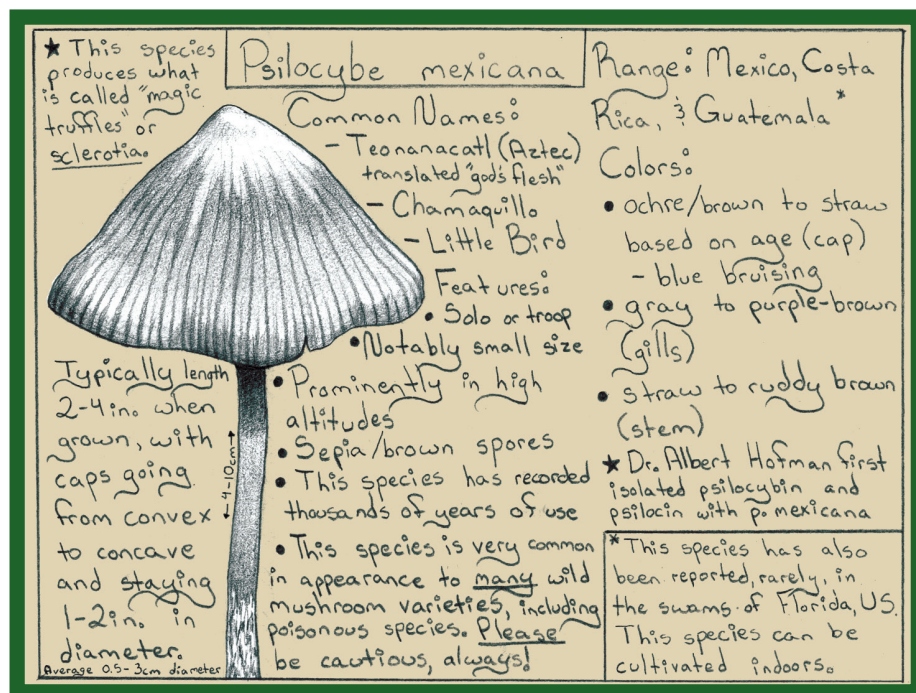 ★ This species
produces what
is called "magic
truffles" or
sclerotia.
Psilocybe mexicana
Common Names:
- Teonanacatl (Aztec)
translated "god's flesh"
- Chamaquillo
- Little Bird
Features:
• Solo or troop
• Notably small size
• Prominently in high
altitudes
• Sepia/brown spores
• This species has recorded
thousands of years of use
• This species is very common
in appearance to many wild
mushroom varieties, including
poisonous species. Please
be cautious, always!
Typically length
2-4in. when
grown, with
caps going
from convex
to concave
and staying
1-2in. in
diameter.
Average 0.5-3cm diameter
4-10cm
Range: Mexico, Costa
Rica, & Guatemala*
Colors:
• ochre/brown to straw
based on age (cap)
- blue bruising
• gray to purple-brown
(gills)
• straw to ruddy brown
(stem)
★ Dr. Albert Hofman first
isolated psilocybin and
psilocin with p. mexicana
*This species has also
been reported, rarely, in
the swams of Florida, US.
This species can be
cultivated indoors.